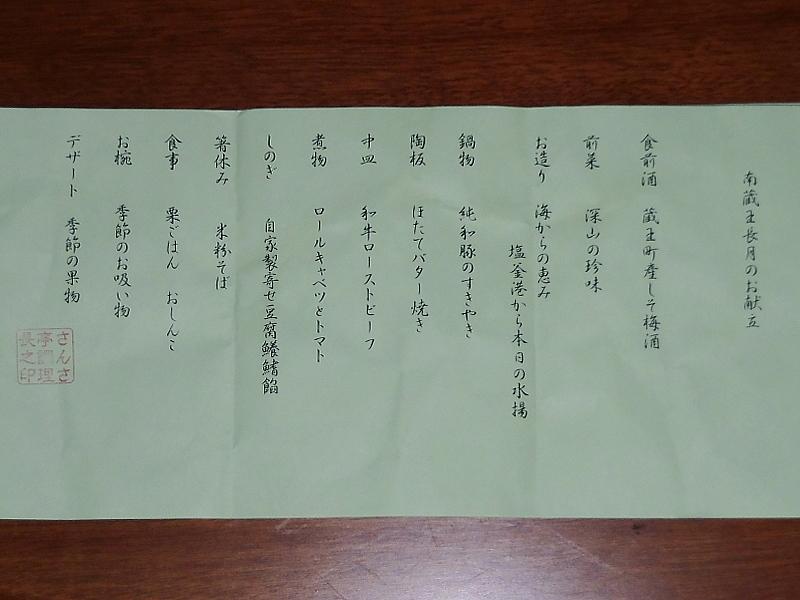 南蔵王長月のお献立
食前酒 蔵王町産しそ梅酒
前菜 深山の珍味
お造り 海からの恵み
塩釜港から本日の水揚
鍋物 純和豚のすきやき
陶板 ほたてバター焼き
中皿 和牛ローストビーフ
煮物 ロールキャベツとトマト
しのぎ 自家製寄せ豆腐鱶鰭餡
箸休み 米粉そば
食事 栗ごはん おしんこ
お椀 季節のお吸い物
デザート 季節の果物
さんさ
亭調理
長之印